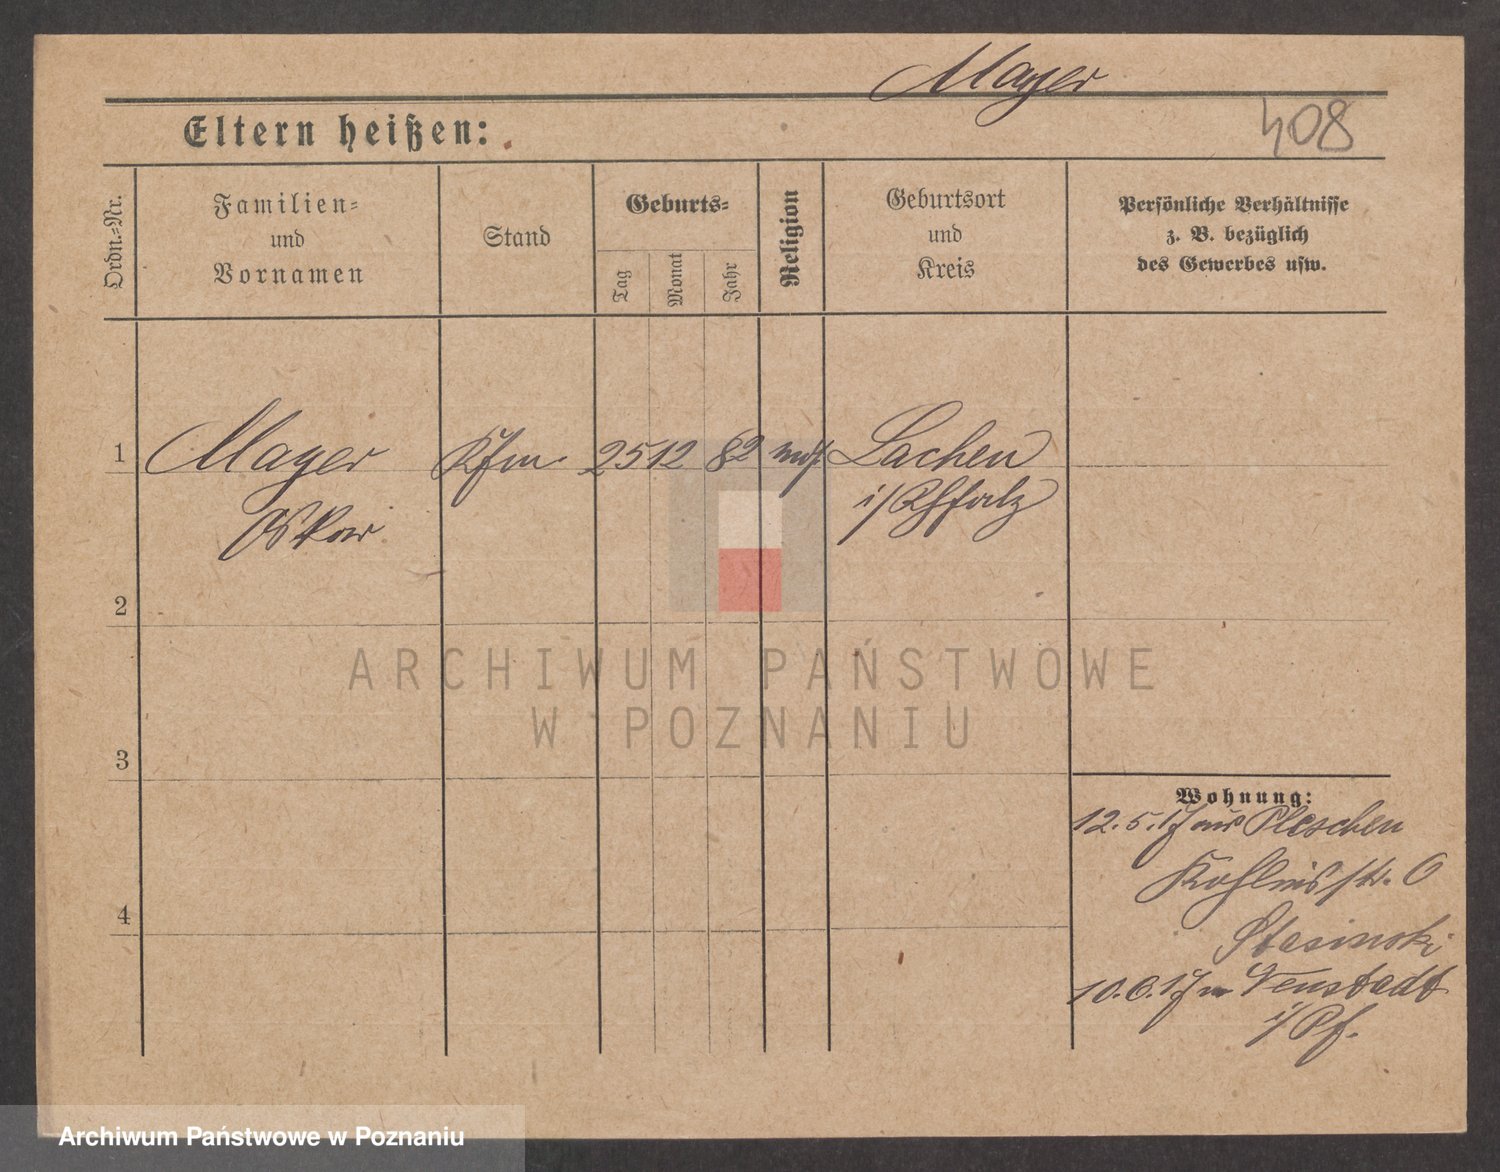 Mayer
408
Eltern heißen:
Ordn.-Nr.
Familien-
und
Vornamen
Stand
Geburts-
Tag
Monat
Jahr
Religion
Geburtsort
und
Kreis
Persönliche Verhältnisse
z. B. bezüglich
des Gewerbes usw.
1 Mayer Kfm. 25 12 82 Lachen
Oskar i/Pfalz
2
ARCHIWUM PAŃSTWOWE
W POZNANIU
3
Wohnung:
12.5.17 aus Pleschen
4
Stasinski
10.6.17 n Neustadt
i/Pf.
Archiwum Państwowe w Poznaniu